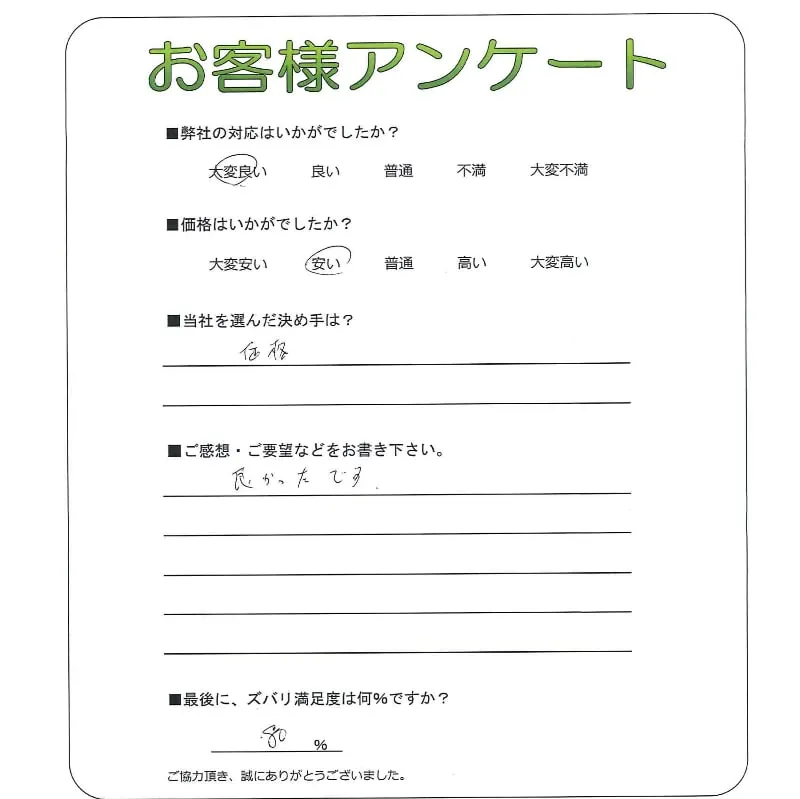 お客様アンケート
■弊社の対応はいかがでしたか？
大変良い 良い 普通 不満 大変不満
■価格はいかがでしたか？
大変安い 安い 普通 高い 大変高い
■当社を選んだ決め手は？
価格
■ご感想・ご要望などをお書き下さい。
良かったです.
■最後に、ズバリ満足度は何%ですか？
80 %
ご協力頂き、誠にありがとうございました。